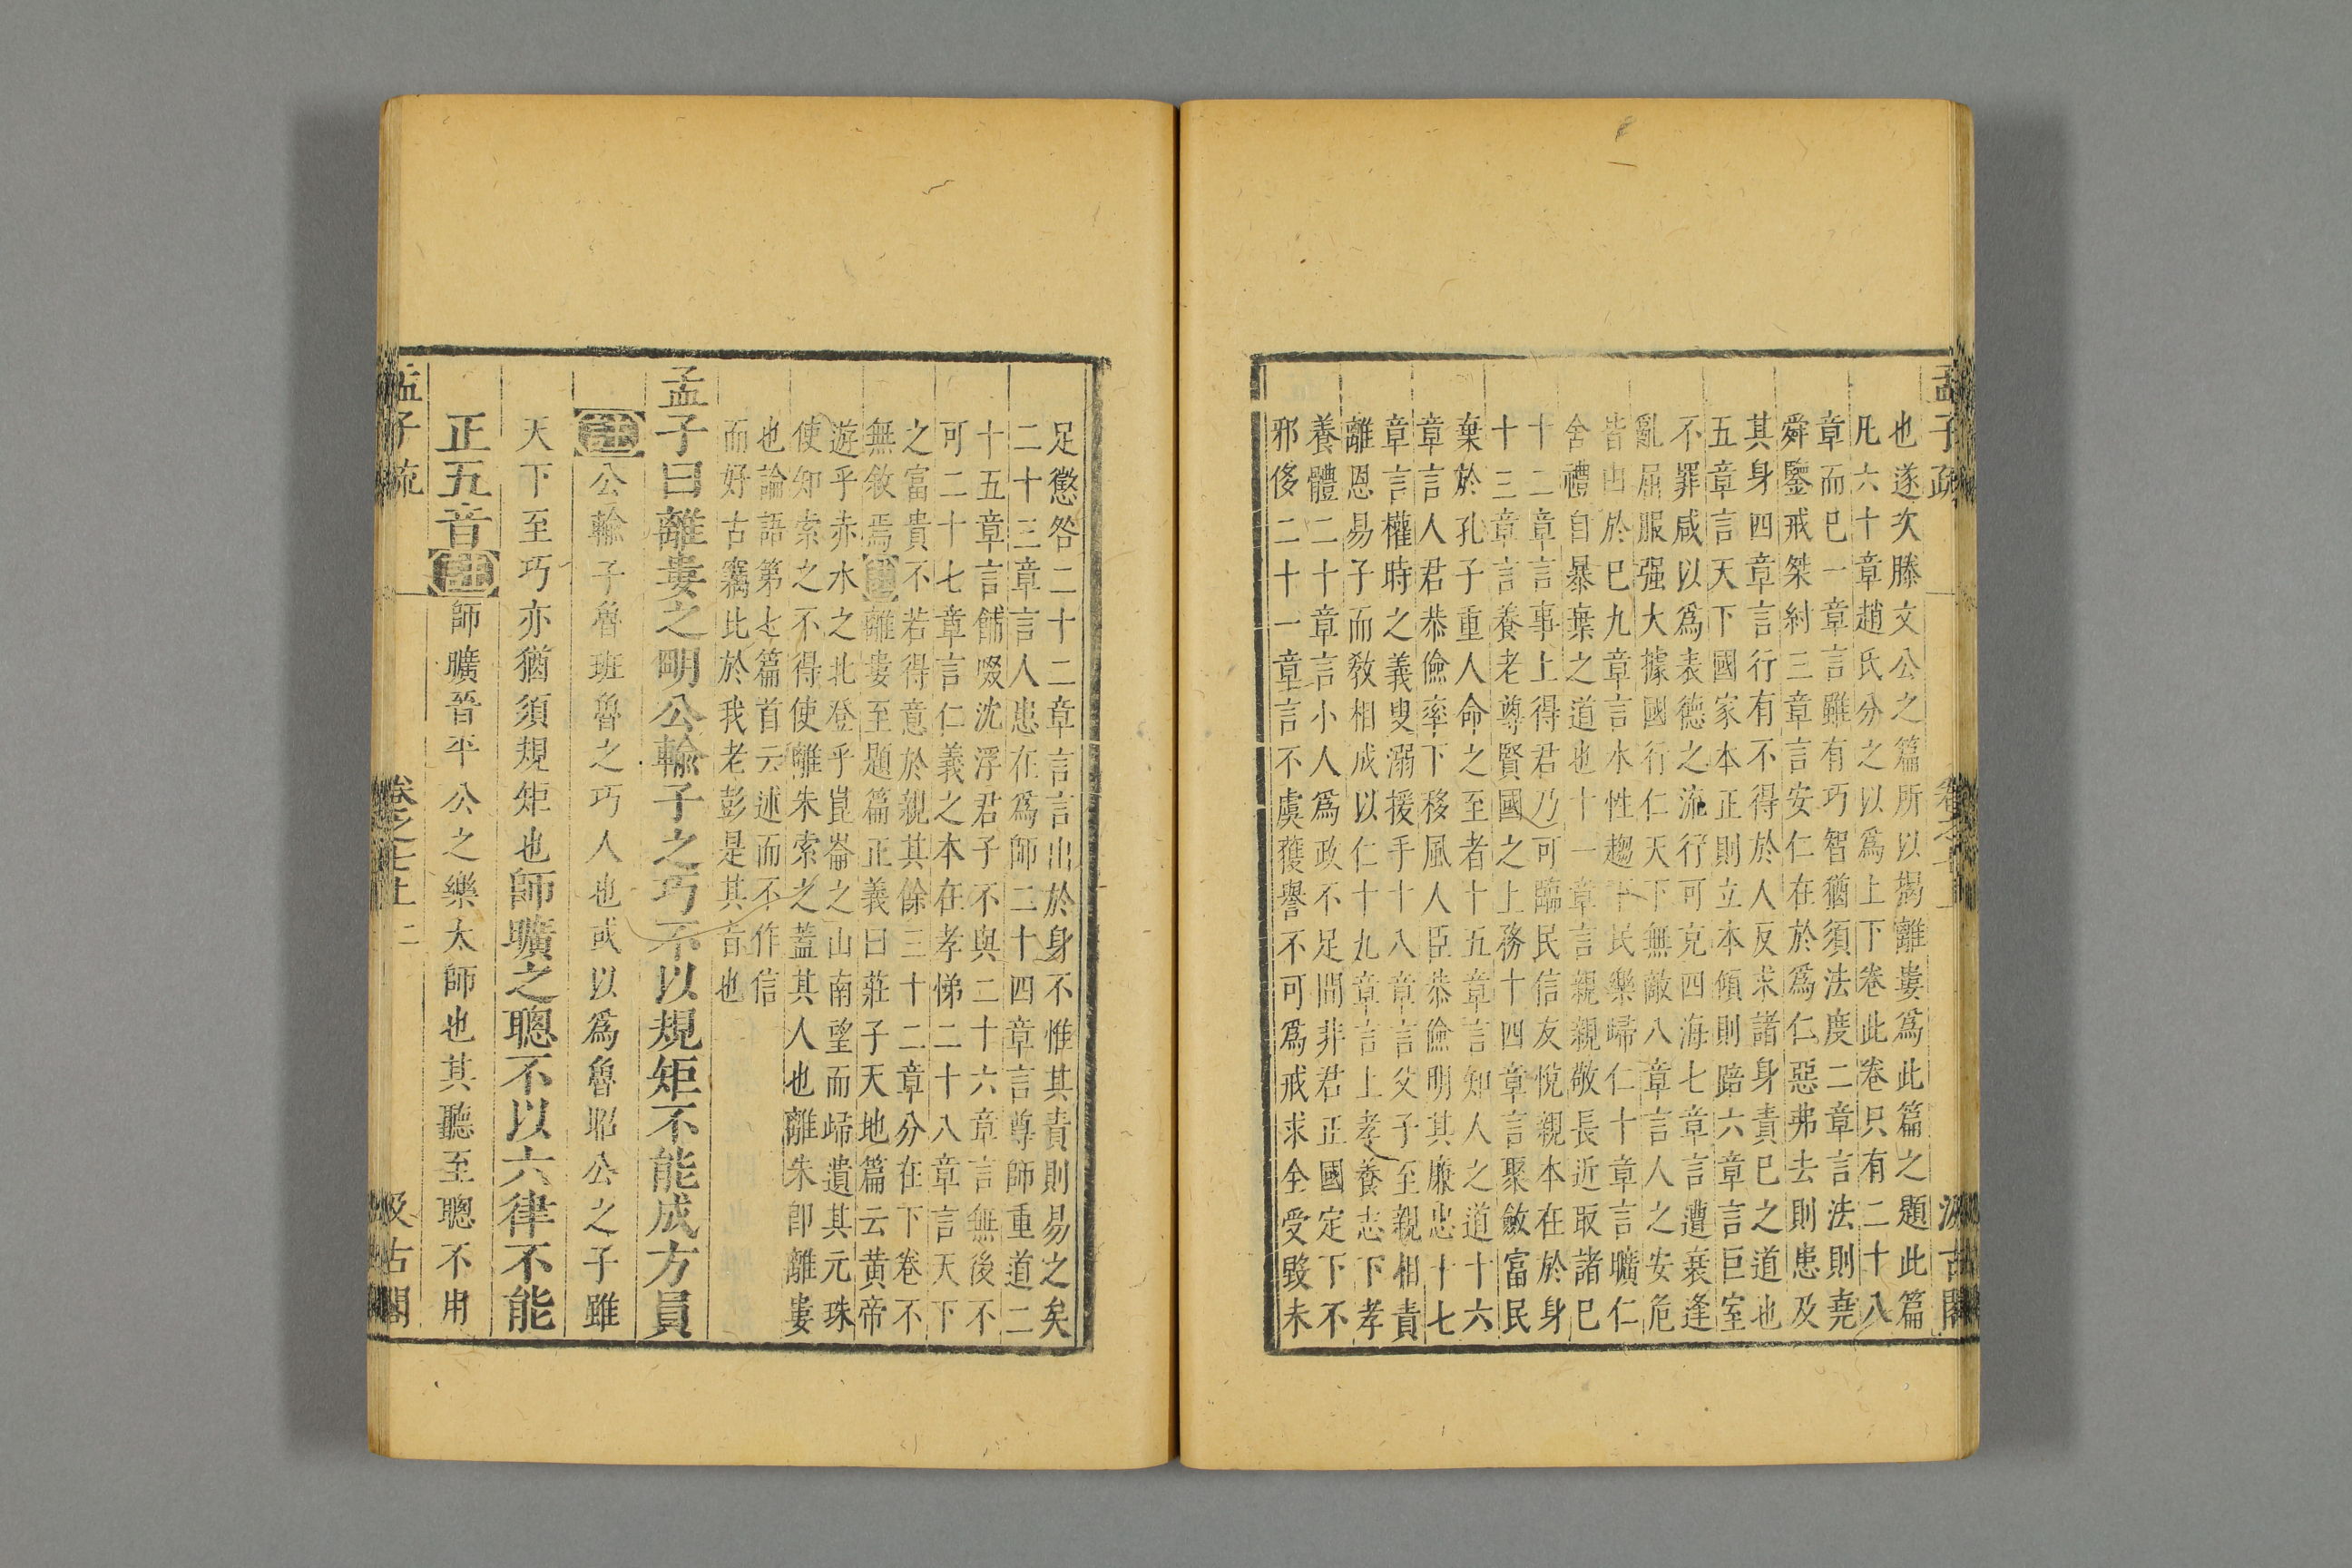 孟子疏
也遂次滕文公之篇所以揭離婁爲此篇之題此篇
凡六十章趙氏分之以爲上下卷此卷只有二十八
章而已一章言雖有巧智猶須法度二章言法則堯
舜鑒戒桀紂三章言安仁在於爲仁惡弗去則患及
其身四章言行有不得於人反求諸身責已之道也
五章言天下國家本正則立本傾則踣六章言巨室
不罪咸以爲表德之流行可充四海七章言遭衰逢
亂屈服强大據國行仁天下無敵八章言人之安危
皆由於已九章言水性趨下民樂歸仁十章言曠仁
舍禮自暴棄之道也十一章言親親敬長近取諸已
十二章言事上得君乃可臨民信友悅親本在於身
十三章言養老尊賢國之上務十四章言聚斂富民
棄於孔子重人命之至者十五章言知人之道十六
章言人君恭儉率下移風人臣恭儉明其廉忠十七
章言權時之義叟溺援手十八章言父子至親相責
離恩易子而敎相成以仁十九章言上孝養志下孝
養體二十章言小人爲政不足間非君正國定下不
邪侈二十一章言不虞獲譽不可爲戒求全受毀未
足懲咎二十二章言言出於身不惟其責則易之矣
二十三章言人患在爲師二十四章言尊師重道二
十五章言餔啜沈浮君子不與二十六章言無後不
可二十七章言仁義之本在孝悌二十八章言天下
之富貴不若得意於親其餘三十二章分在下卷不
無敘焉 離婁至題篇正義曰莊子天地篇云黃帝
遊乎赤水之北登乎崑崙之山南望而歸遺其元珠
使知索之不得使離朱索之蓋其人也離朱卽離婁
也論語第七篇首云述而不作信
而好古竊比於我老彭是其旨也
孟子曰離婁之明公輸子之巧不以規矩不能成方員
公輸子魯班魯之巧人也或以爲魯昭公之子雖
天下至巧亦猶須規矩也師曠之聰不以六律不能
正五音 師曠晉平公之樂太師也其聽至聰不用
孟子疏 卷之七上 二 汲古閣